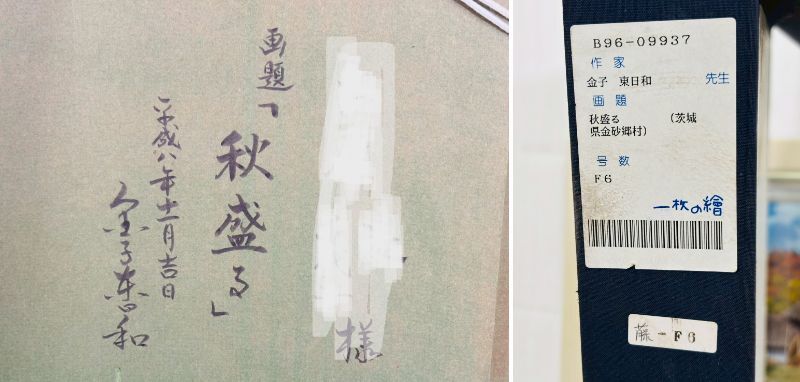 様
画題「秋盛る」
平成八年十一月吉日
金子東日和
B96-09937
作家
金子 東日和 先生
画題
秋盛る (茨城
県金砂郷村)
号数
F6
一枚の繪
藤-F6